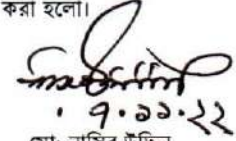 করা হলো।
৭.১১.২২
মোঃ নাসির উদ্দিন